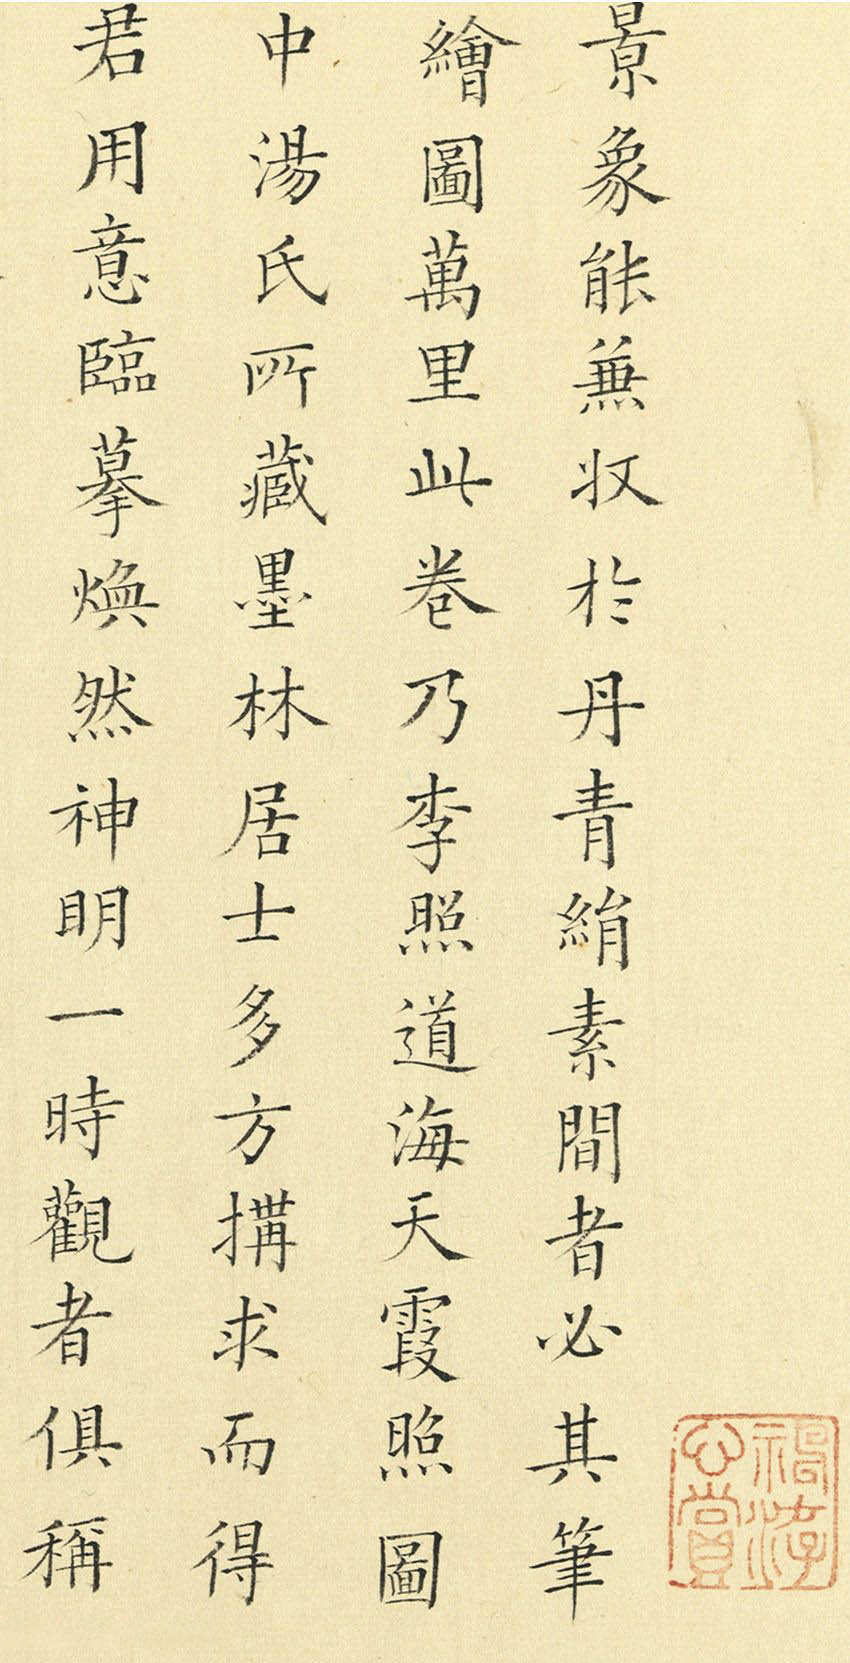 景象能兼収於丹青絹素間者必其筆
繪圖萬里此卷乃李照道海天霞照圖
中湯氏所藏墨林居士多方搆求而得
君用意臨摹煥然神明一時觀者俱稱